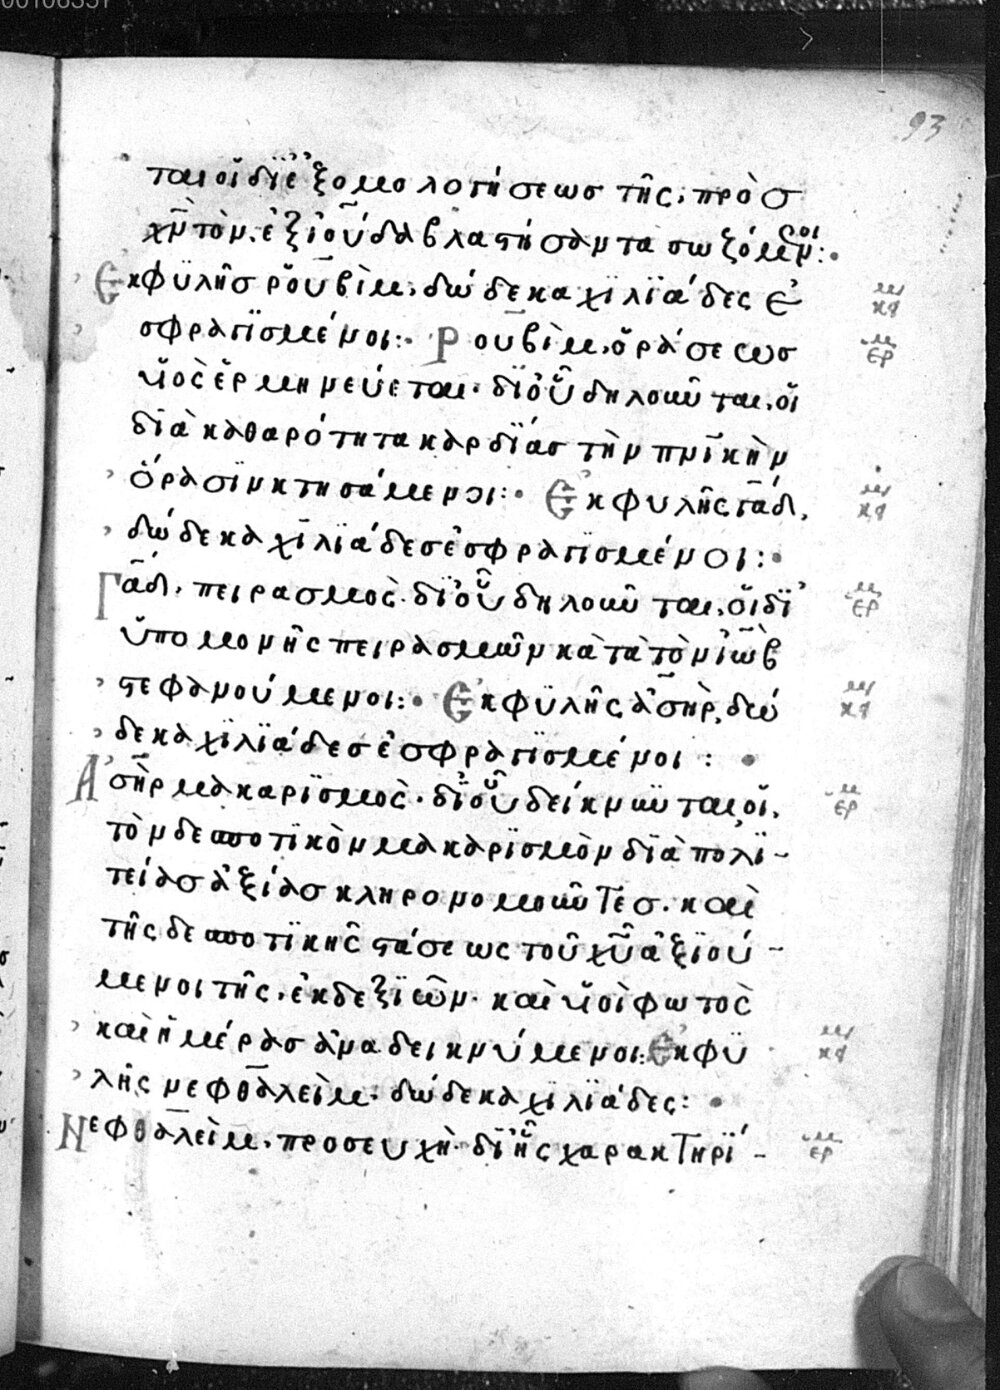 93
ται οἵ δϊ ἐξομολογήσεωσ τῆς, πρὸσ
χ̅ν̅ τὸν, ἐξ ἰούδα βλαστήσαντα σωζόμενοι:
Ἐκ φϋλῆσ ῥουβὶμ, δώδεκα χϊλϊάδες ἐ
σφραγϊσμένοι: Ρουβὶμ, ὁράσεωσ
υἱὸς ἑρμηνεύεται. δϊ οὗ δηλοῦνται, οἵ
διὰ καθαρότητα καρδΐασ τὴν πνικὴν
ὅρασϊν κτησάμενοι: Ἐκ φυλῆς γὰδ,
δώδεκα χϊλϊάδεσ ἐσφραγϊσμένοι:
Γὰδ, πειρασμὸς. δϊ οὗ δηλοῦνται, οἵ δϊ
ὑπομονῆς πειρασμῶν κατὰ τὸν ἰὼβ
στεφανούμενοι: Ἐκ φϋλῆς ἀσὴρ, δώ
δεκα χϊλϊάδεσ ἐσφραγϊσμένοι:
Ἀσὴρ μακαρϊσμὸς. δϊ οὗ δείκνυνται οἵ,
τὸν δεσποτϊκὸν μακαρϊσμὸν δϊὰ πολϊ-
τείασ ἀξίασ κληρονομοῦντεσ. καὶ
τῆς δεσποτϊκῆς στάσεως τοῦ χ̅υ̅ ἀξϊού-
μενοι τῆς, ἐκ δεξϊῶν. καὶ υἱοὶ φωτὸς
καὶ ἡμέρασ ἅμα δεικνύμενοι: Ἐκ φϋ
λῆς νεφθαλεὶμ, δώδεκα χϊλϊάδες:
Νεφθαλεὶμ, προσευχὴ. δϊ ἧς χαρακτηρί-